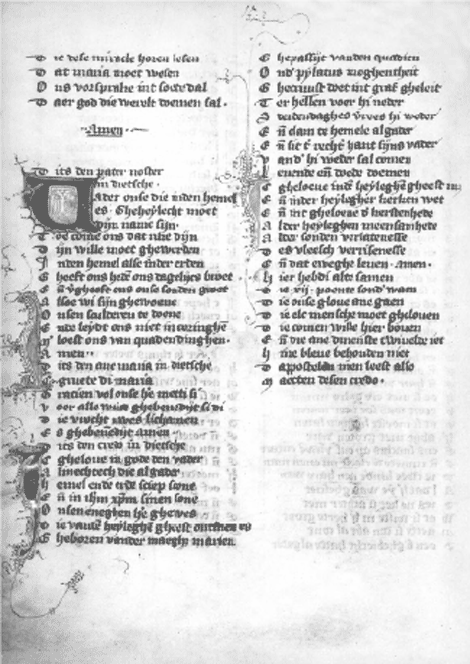 D ie dese miracle horen lesen
D at maria moet wesen
O ns vorsprake int soete dal
D aer god die werelt doemen sal.
Amen
D its den pater noster
in dietsche.
V Ader onse die inden hemel
es. Gheheylecht moet
dijn name sijn.
T oe come ons dat rike dijn
D ijn wille moet ghewerden
I nden hemel alse inder erden
G heeft ons hedē ons dageliƷcs broet
E n̄ vˀgheeft ons onse sonden groet
A lsoe wi sijn ghewoene
O nsen sculderen te doene
E nde leydt ons niet in
M aer loest ons van quadendinghen.
A men
D its den ave maria in dietsche
gruete di maria
G racien vol onse he met
V oer alle ghebenedijt si di
D ie vrocht lichamen
E s ghebenedijt. Amen.
D its den credo in dietsche
C gheloue in gode den vader
A lmechtech die al gader
H emel ende erde sciep sone
E n̄ in ihm xp̄m sinen sone
O nsen eneghen he
D ie vanden heyleghē gheest ontfaen
G heboren vander maeght marien.
G hepassijt vanden quadien
O nd pylatus moghentheit
G hecruust doet int graf gheleit
T er hellen voer hi neder
S derdendaghes weder
E n̄ clam te hemele al gader
E n̄ sit rechter hant sijns vader
V and hi weder sal comen
L evende en̄ dode doemen
C gheloeue indē heyleghē gheest
E n̄ inder heylegher kerken wet
E n̄ int gheloeue kerstenhede
A lder heyleghen meensamhede
A lder sonden verlatenesse
D es vleesch verrisenesse
E n̄ dat eweghe leven. amen.
H ier hebdi alte samen
D ie vij. poente
D ie onse gloue ane gaen
D ie elc mensche moet ghelouen
D ie comen wilt hier boven
E n̄ die ane dinenste
H ine bleue behouden niet
D apostolen men leest alle
M aecten desen credo.